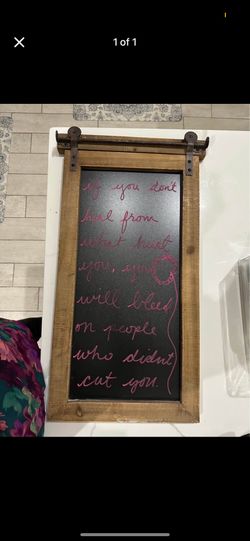 1 of 1
if you don't
heal from
what hurt
you, you
will bleed
on people
who didn't
cut you.